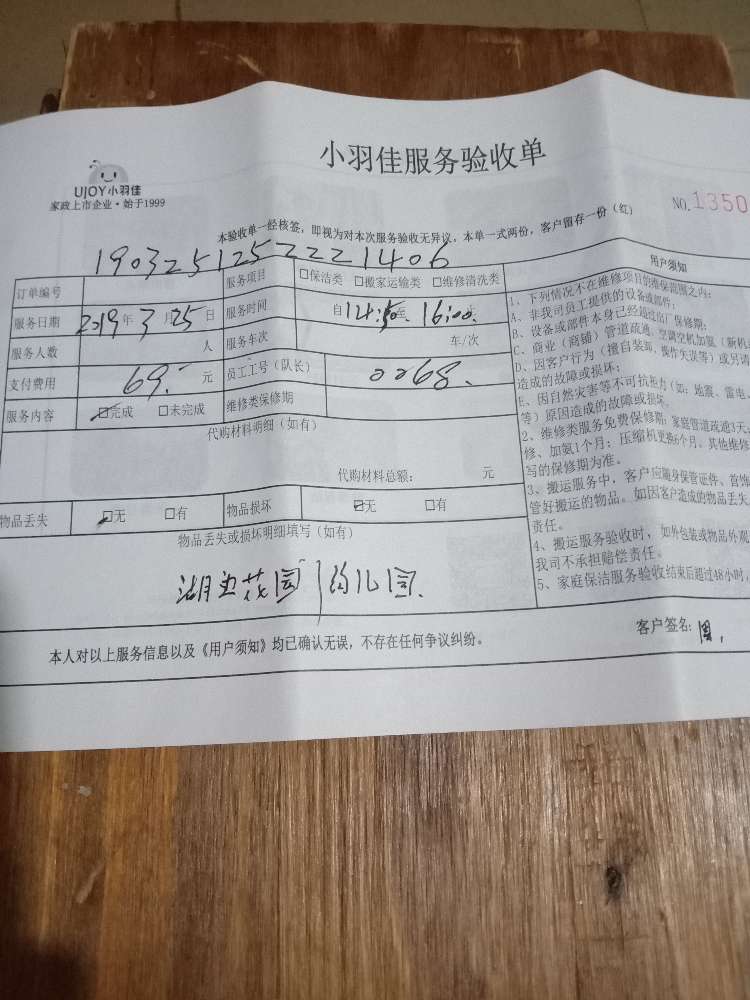 小羽佳服务验收单
UJOY小羽佳
家政上市企业·始于1999
NO.1350
本验收单一经核签，即视为对本次服务验收无异议，本单一式两份，客户留存一份（红）
1903251252221406
订单编号
服务项目 □保洁类 □搬家运输类 □维修清洗类
服务日期 2019年3月25日
服务时间 自 至16:00
服务人数 人
服务车次 车/次
支付费用 69.- 元
员工工号（队长） 0068.
服务内容 □完成 □未完成
维修类保修期
代购材料明细（如有）
代购材料总额： 元
物品丢失 □无 □有
物品损坏 □无 □有
物品丢失或损坏明细填写（如有）
花园 幼儿园.
本人对以上服务信息以及《用户须知》均已确认无误，不存在任何争议纠纷。
客户签名:
用户须知
1、下列情况不在维修项目的维保范围之内：
A、非我司员工提供的设备或部件；
B、设备或部件本身已经超过出厂保修期；
C、商业（商铺）管道疏通、空调空机加氨（新机
D、因客户行为（擅自装卸、操作失误等）或另请
造成的故障或损坏；
E、因自然灾害等不可抗拒力（如：地震、雷电、
等）原因造成的故障或损坏。
2、维修类服务免费保修期：家庭管道疏通3天；
修、加氨1个月；压缩机更换6个月、其他维修
写的保修期为准。
3、搬运服务中，客户应随身保管证件、首饰
管好搬运的物品。如因客户造成的物品丢失
责任。
4、搬运服务验收时，如外包装或物品外观
我司不承担赔偿责任。
5、家庭保洁服务验收结束后超过48小时，